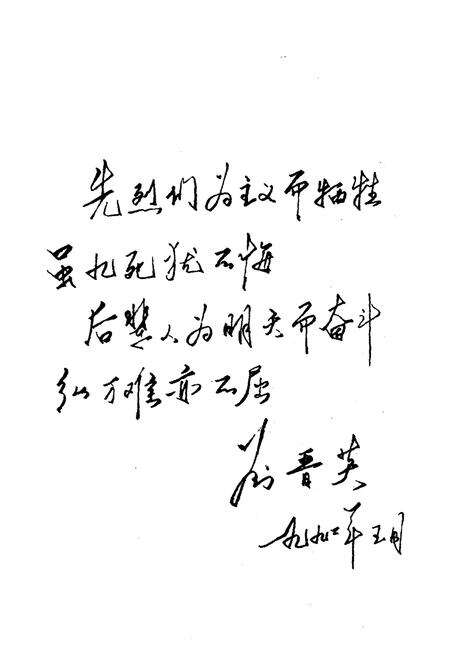 先烈们为主义而牺牲
虽九死犹不悔
后辈人为明天而奋斗
纵万难亦不屈
晋英
九九二年五月